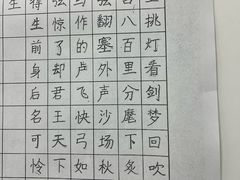 挑灯看剑梦回吹
八百里分麾下炙
弦翻塞外声沙场秋
马作的卢飞快弓如
弦惊了却君王天下
得生前身后名可怜